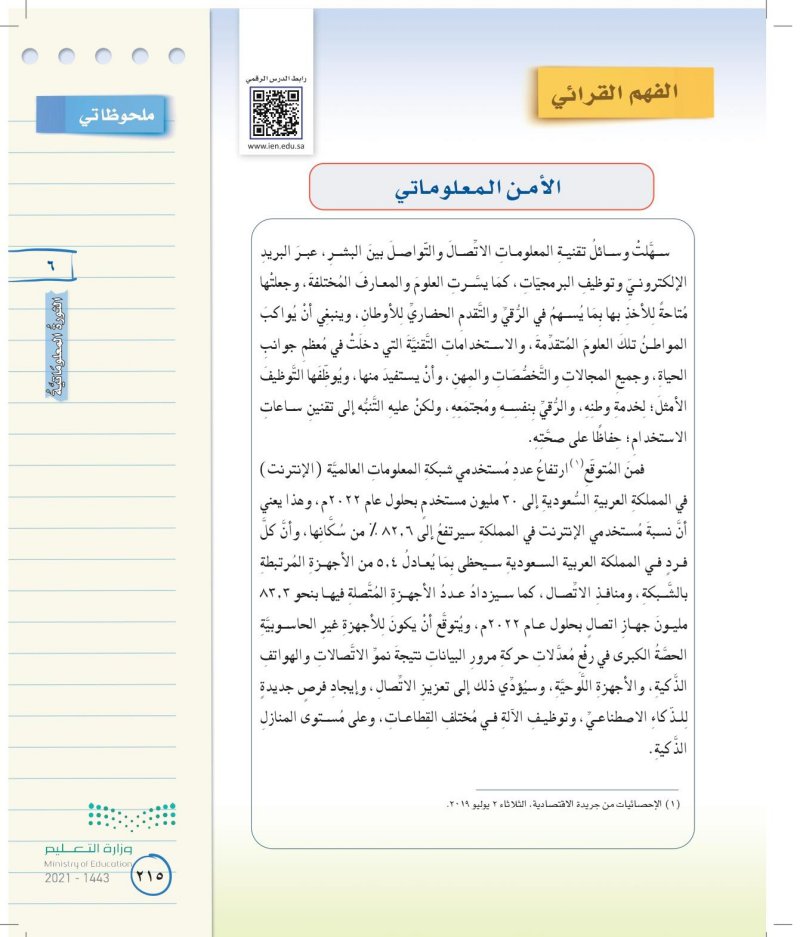 رابط الدرس الرقمي
www.ien.edu.sa
الفهم القرائي
ملحوظاتي
الأمـن الـمعلومـاتي
ســهَّلتْ وسـائلُ تقنيـةِ المعلومـاتِ الاتِّصـالَ والتَّواصـلَ بينَ البشـرِ، عبـرَ البريدِ
الإلكترونـيِّ وتوظيفِ البرمجيَّاتِ، كمَا يسَّـرتِ العلومَ والمعـارفَ المُختلفةَ، وجعلتْها
مُتاحةً لِلأخذِ بها بمَا يُسـهمُ في الرُّقيِّ والتَّقدمِ الحضاريِّ لِلأوطانِ، وينبغِي أنْ يُواكبَ
المواطـنُ تلكَ العلومَ المُتقدِّمةَ، والاستخداماتِ التَّقنيَّةَ التي دخلَتْ في مُعظمِ جوانبِ
الحياةِ، وجميعِ المجالاتِ والتَّخصُّصَاتِ والمِهنِ، وأنْ يستفيدَ منها، ويُوظِّفَها التَّوظيفَ
الأمثلَ؛ لِخدمةِ وطنِهِ، والرُّقيِّ بنفسِـهِ ومُجتمَعِهِ، ولكنْ عليهِ التَّنبُّه إلى تقنينِ سـاعاتِ
الاستخدامِ؛ حِفاظًا على صحَّتِهِ.
فمنَ المُتوقَعِ(١) ارتفاعُ عددِ مُستخدمي شبكةِ المعلوماتِ العالميَّةِ (الإنترنت)
في المملكةِ العربيةِ السُّعوديةِ إلى ٣٠ مليون مستخدمٍ بحلولِ عام ٢٠٢٢م، وهذا يعني
أنَّ نسبةَ مُستخدمِي الإنترنت في المملكةِ سيرتفعُ إلى ٨٢,٦ ٪ من سُكَّانِها، وأنَّ كلَّ
فـردٍ فـي المملكة العربية السـعودية سيحظى بمَا يُعـادلُ ٥,٤ من الأجهـزةِ المُرتبطةِ
بالشَّـبكةِ، ومنافـذِ الاتِّصـال، كما سـيزدادُ عـددُ الأجهـزةِ المُتَّصلةِ فيهـا بنحو ٨٣,٣
مليـونَ جهـازِ اتصالٍ بحلولِ عـام ٢٠٢٢م، ويُتوقَّع أنْ يكونَ لِلأجهزةِ غيرِ الحاسـوبيَّةِ
الحصَّةُ الكبرى في رفْعِ مُعدَّلاتِ حركةِ مرورِ البياناتِ نتيجةَ نموِّ الاتَّصالاتِ والهواتفِ
الذَّكيةِ، والأجهزةِ اللَّوحيَّةِ، وسيُؤدِّي ذلك إلى تعزيزِ الاتِّصالِ، وإيجادِ فرصٍ جديدةٍ
لِلـذّكاءِ الاصطناعيِّ، وتوظيـفِ الآلةِ فـي مُختلفِ القِطاعـاتِ، وعلى مُسـتوى المنازلِ
الذَّكيةِ.
(١) الإحصائيات من جريدة الاقتصادية، الثلاثاء ٢ يوليو ٢٠١٩.
٦
الثورةُ المعلوماتيَّةُ
وزارة التعـليم
Ministry of Education
2021 - 1443
٢١٥